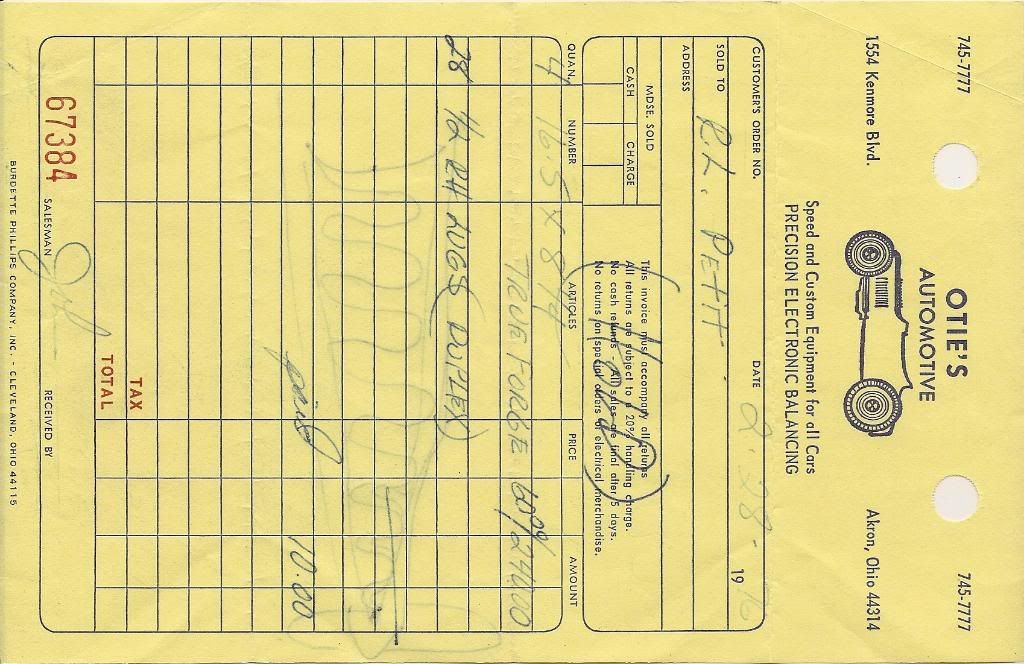 745-7777 745-7777
OTIE'S
AUTOMOTIVE
1554 Kenmore Blvd. Akron, Ohio 44314
Speed and Custom Equipment for all Cars
PRECISION ELECTRONIC BALANCING
CUSTOMER'S ORDER NO. DATE 2-28- 19
SOLD TO R.L. PETIT
ADDRESS
MDSE. SOLD
CASH CHARGE
This invoice must accompany all returns
All returns are subject to a 20% handling charge.
No cash refunds - All sales are final after 5 days.
No returns on special orders or electrical merchandise.
QUAN. NUMBER ARTICLES PRICE AMOUNT
4 16.5 X
TRUE FORGE 60.00 240.00
28 1/2 RH LUGS (DUPLEX)
paid 10.00
TAX
TOTAL
67384 SALESMAN RECEIVED BY
BURDETTE PHILLIPS COMPANY, INC. - CLEVELAND, OHIO 44115